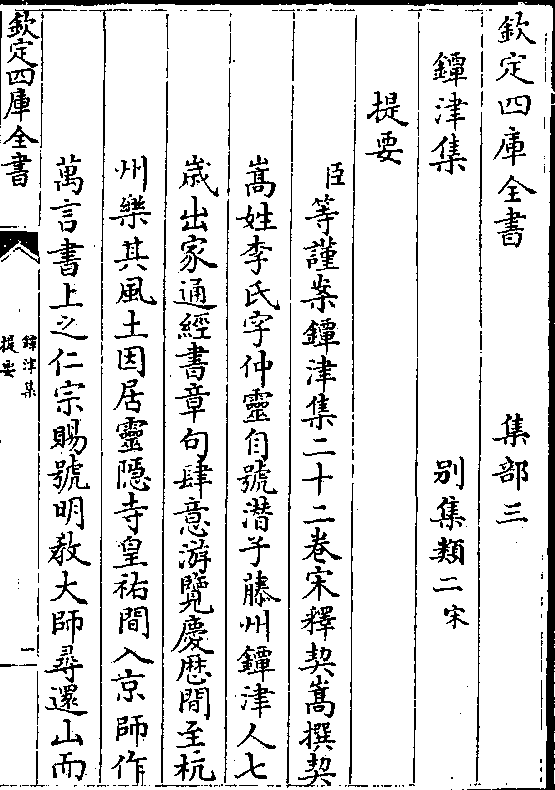 欽定四庫全書　集部三
鐔津集　別集類二宋
提要
臣等謹案鐔津集二十二卷宋釋契嵩撰契
嵩姓李氏字仲靈自號潛子藤州鐔津人七
歲出家通經書章句肆意游覽慶厯間至杭
州樂其風土因居靈隱寺皇祐間入京師作
萬言書上之仁宗賜號明教大師尋還山而
欽定四庫全書
鐔津集
提要
一